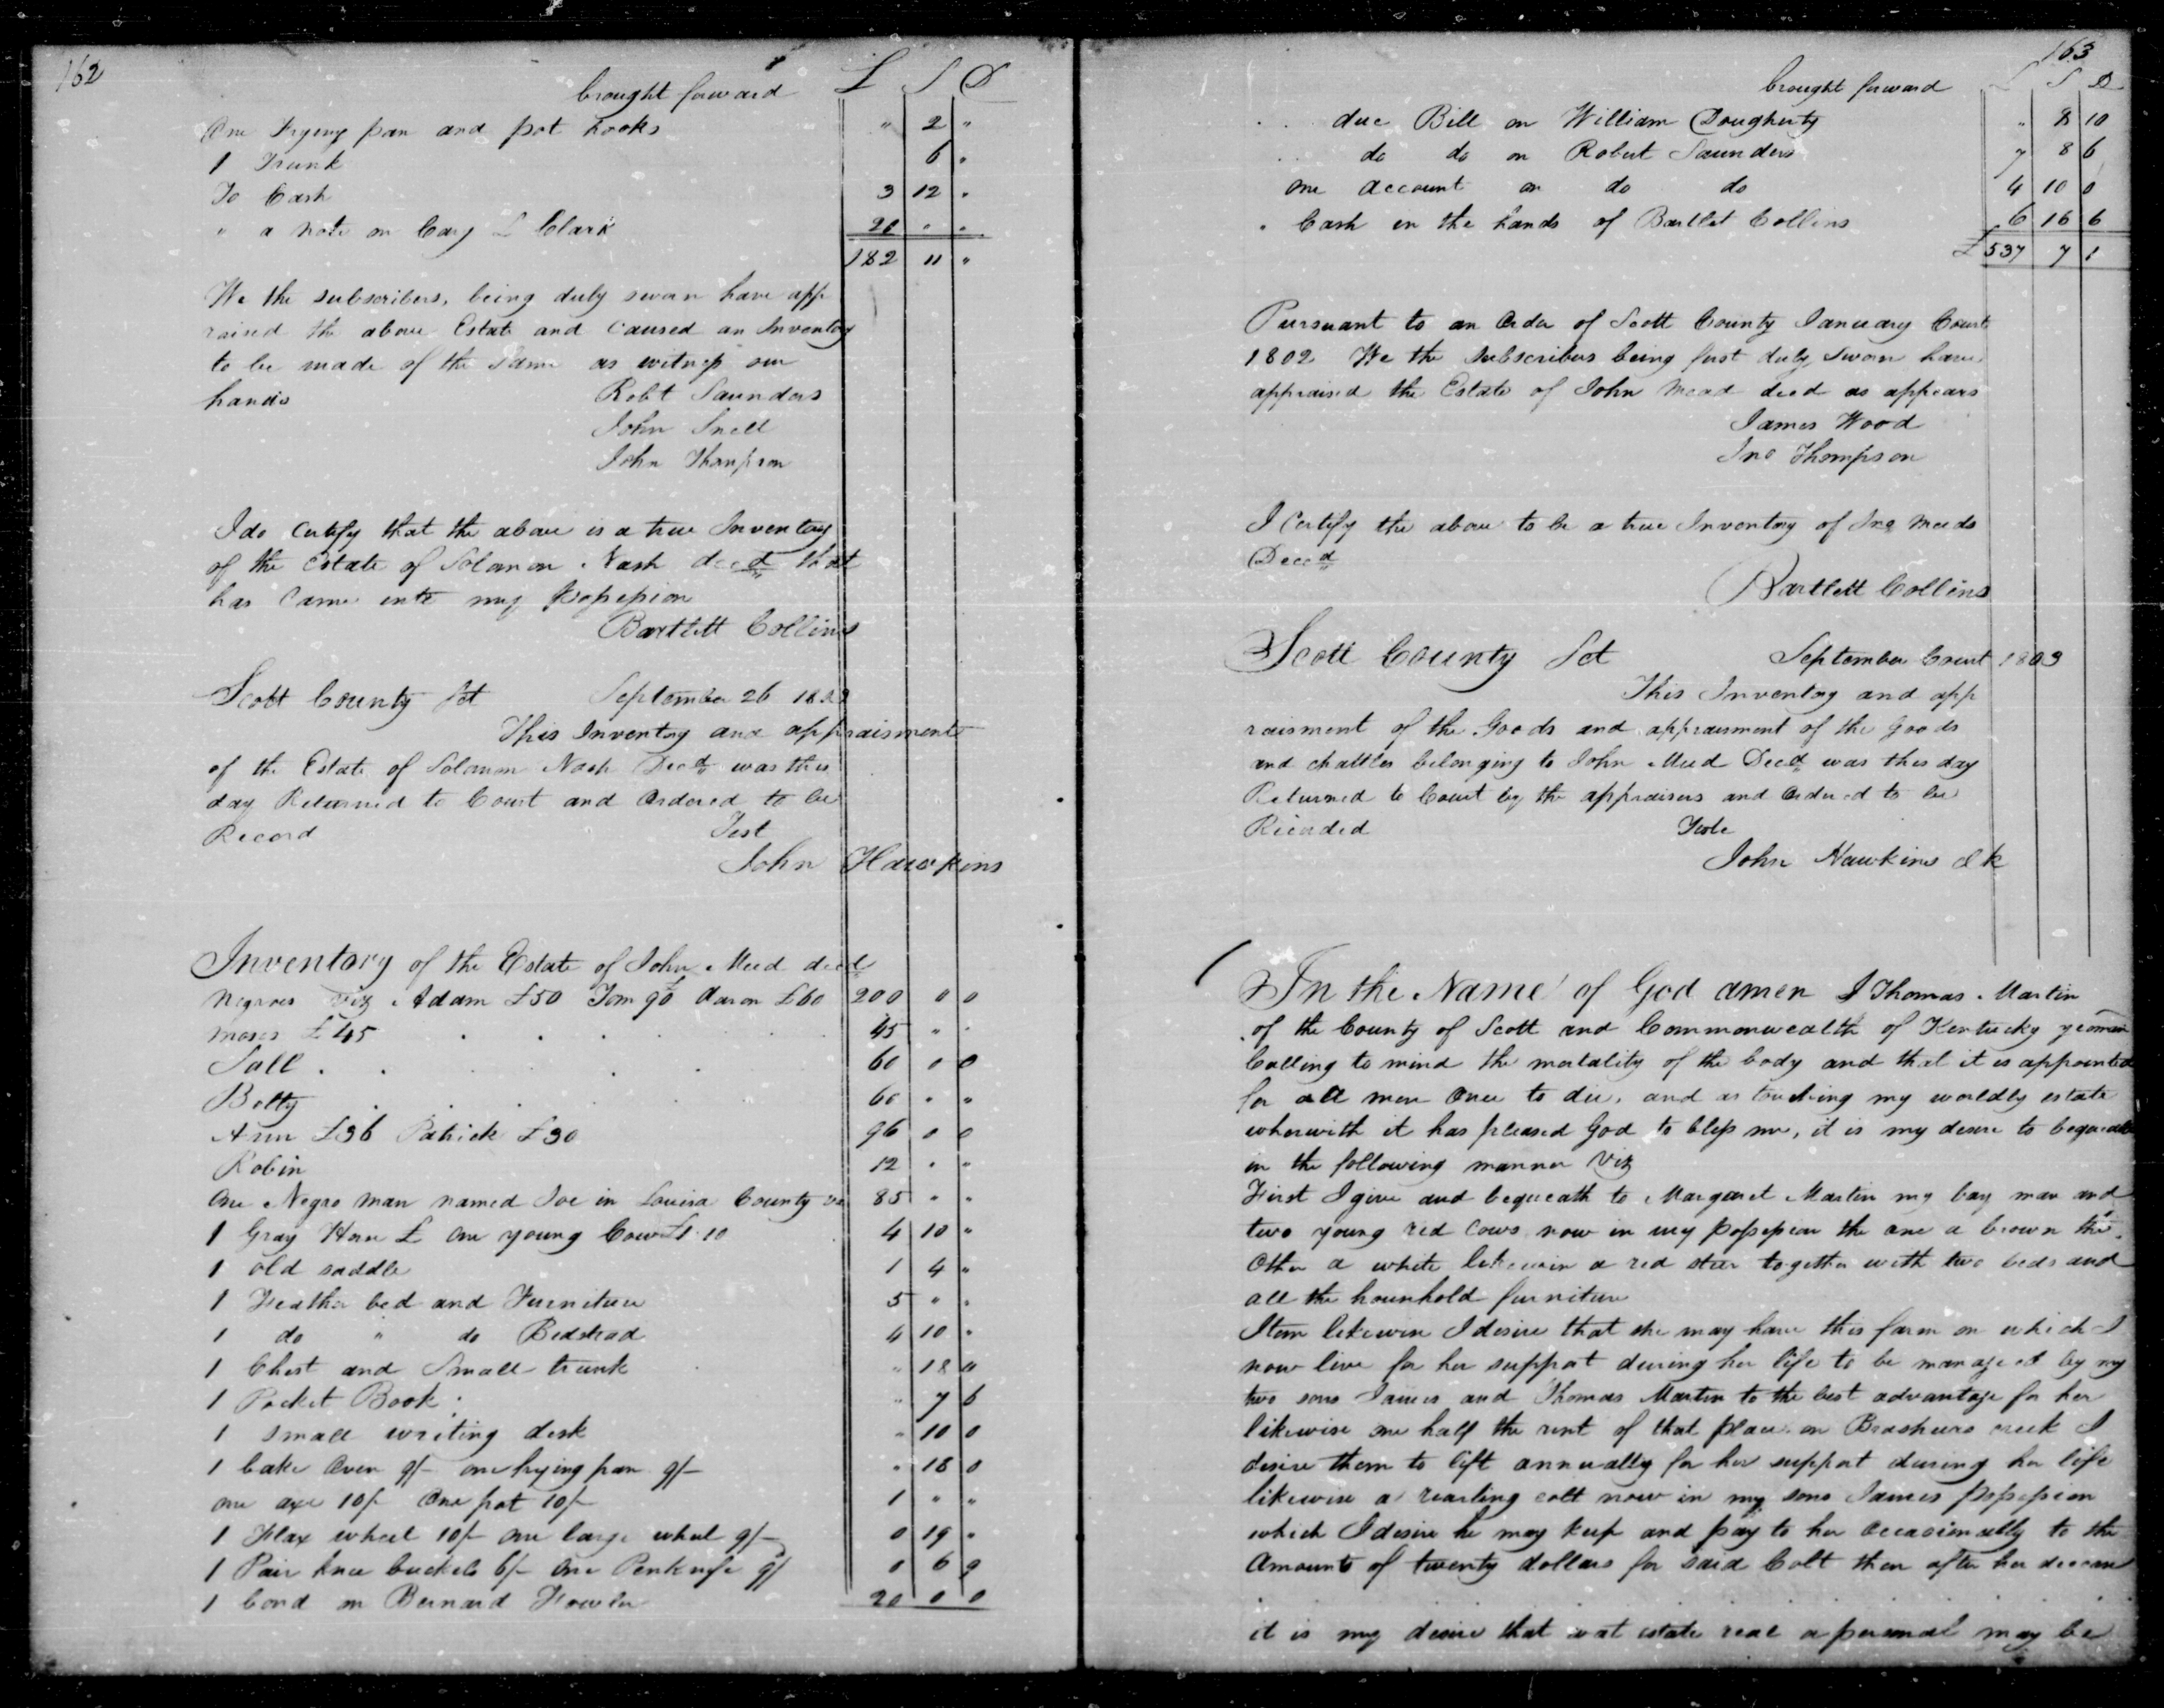 162
brought forward £ S D
One Frying pan and pot hooks " 2 "
1 Trunk 6 "
To Cash 3 12 "
" a note on Cary L Clark 20 " "
182 11 "
We the subscribers, being duly sworn have app
raised the above Estate and Caused an Inventory
to be made of the same as witness our
hands Robt Saunders
John Snell
John Thompson
I do Certify that the above is a true Inventory
of the Estate of Soloman Nash decd that
has Came into my possession
Bartlett Collins
Scott County Sct September 26 1803
This Inventory and appraisment
of the Estate of Soloman Nash Decd was this
day Returned to Court and Ordered to be
Record Test
John Hawkins
Inventory of the Estate of John Meed decd
Negroes Viz Adam £50 Tom 90 Aaron £60 200 0 0
Moses £45 45 " "
Sall 60 0 0
Botty 60 " "
Ann £36 Patrick £30 96 0 0
Robin 12 " "
One Negro man named Joe in Louisa County Va 85 " "
1 Gray Horse £ One young Cow £1.10 4 10 "
1 old saddle 1 4 "
1 Feather bed and Furniture 5 " "
1 do " do Bedstead 4 10 "
1 Chest and Small trunk " 18 0
1 Pocket Book " 7 6
1 small writing desk " 10 0
1 bake Oven 9/- one frying pan 9/- " 18 0
one axe 10/- One pot 10/- 1 " "
1 Flax wheel 10/- one large wheel 9/- 0 19 "
1 Pair knee buckels 6/- One Penknife 9/ 0 6 9
1 bond on Bernard Fowler 20 0 0
163
brought forward £ S D
due Bill on William Dougherty " 8 10
do do on Robert Saunders 7 8 6
one account on do do 4 10 0
" Cash in the hands of Bartlet Collins 6 16 6
£537 7 1
Pursuant to an Order of Scott County January Court
1802 We the Subscribers being first duly Sworn have
appraised the Estate of John Mead decd as appears
James Wood
Jno Thompson
I Certify the above to be a true Inventory of Jno Meeds
Decd
Bartlett Collins
Scott County Sct September Court 1803
This Inventory and app
raisment of the Goods and appraisment of the goods
and chattles belonging to John Meed Decd was this day
Returned to Court by the appraisers and Ordered to be
Recorded Teste
John Hawkins Clk
In the Name of God amen I Thomas Martin
of the County of Scott and Commonwealth of Kentucky yeoman
Calling to mind the mortality of the body and that it is appointed
for all men Once to die, and as touching my worldly estate
wherwith it has pleased God to bless me, it is my desire to bequeath
in the following manner Viz
First I give and bequeath to Margaret Martin my bay mare and
two young red cows now in my possession the one a brown the
Other a white likewise a red steer together with two beds and
all the hounhold furniture
Item likewise I desire that she may have this farm on which I
now live for her support during her life to be managed by my
two sons James and Thomas Martin to the best advantage for her
likewise one half the rent of that place on Brashears creek I
desire them to lift annually for her support during her life
likewise a yearling colt now in my sons James possession
which I desire he may keep and pay to her Occasionally to the
Amounts of twenty dollars for said Colt then after her decease
it is my desire that estate real personal may be